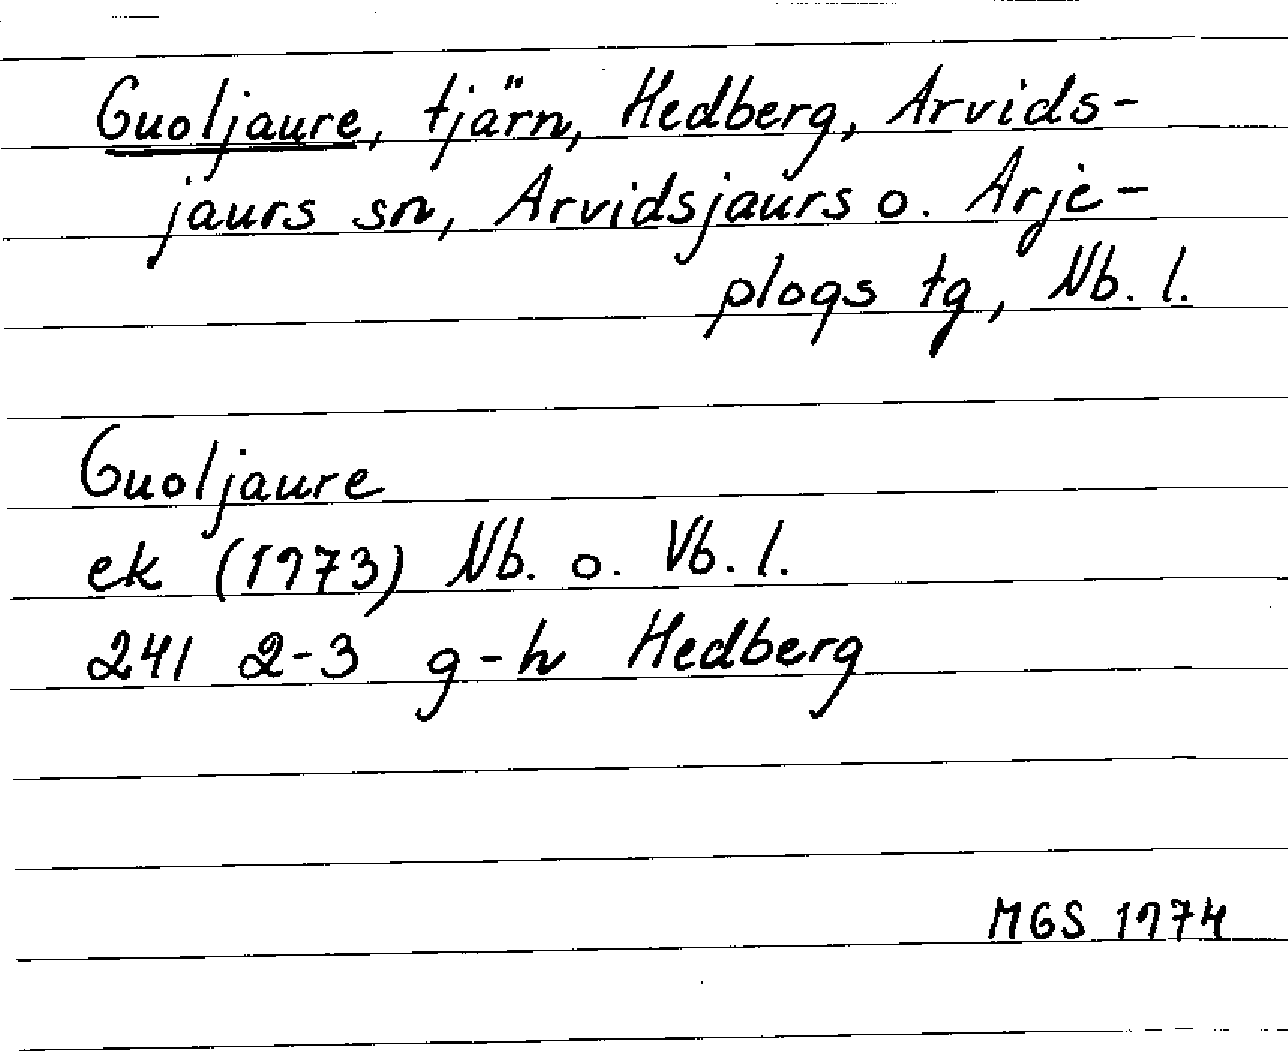 Guoljaure, tjärn, Hedberg, Arvids-
jaurs sn, Arvidsjaurs o. Arje-
plogs tg, Nb. l.
Guoljaure
ek (1973) Nb. o. Vb. l.
241 2-3 g-h Hedberg
MGS 1974